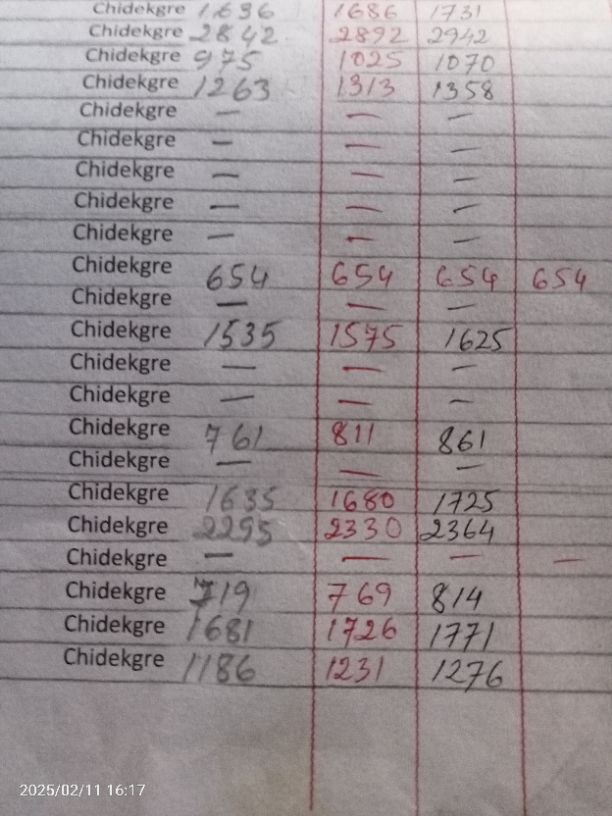 Chidekgre 1636 1686 1731
Chidekgre 2842 2892 2942
Chidekgre 975 1025 1070
Chidekgre 1263 1313 1358
Chidekgre — — —
Chidekgre — — —
Chidekgre — — —
Chidekgre — — —
Chidekgre — — —
Chidekgre 654 654 654 654
Chidekgre — — —
Chidekgre 1535 1575 1625
Chidekgre — — —
Chidekgre — — —
Chidekgre 761 811 861
Chidekgre — — —
Chidekgre 1635 1680 1725
Chidekgre 2295 2330 2364
Chidekgre — — — —
Chidekgre 719 769 814
Chidekgre 1681 1726 1771
Chidekgre 1186 1231 1276
2025/02/11 16:17